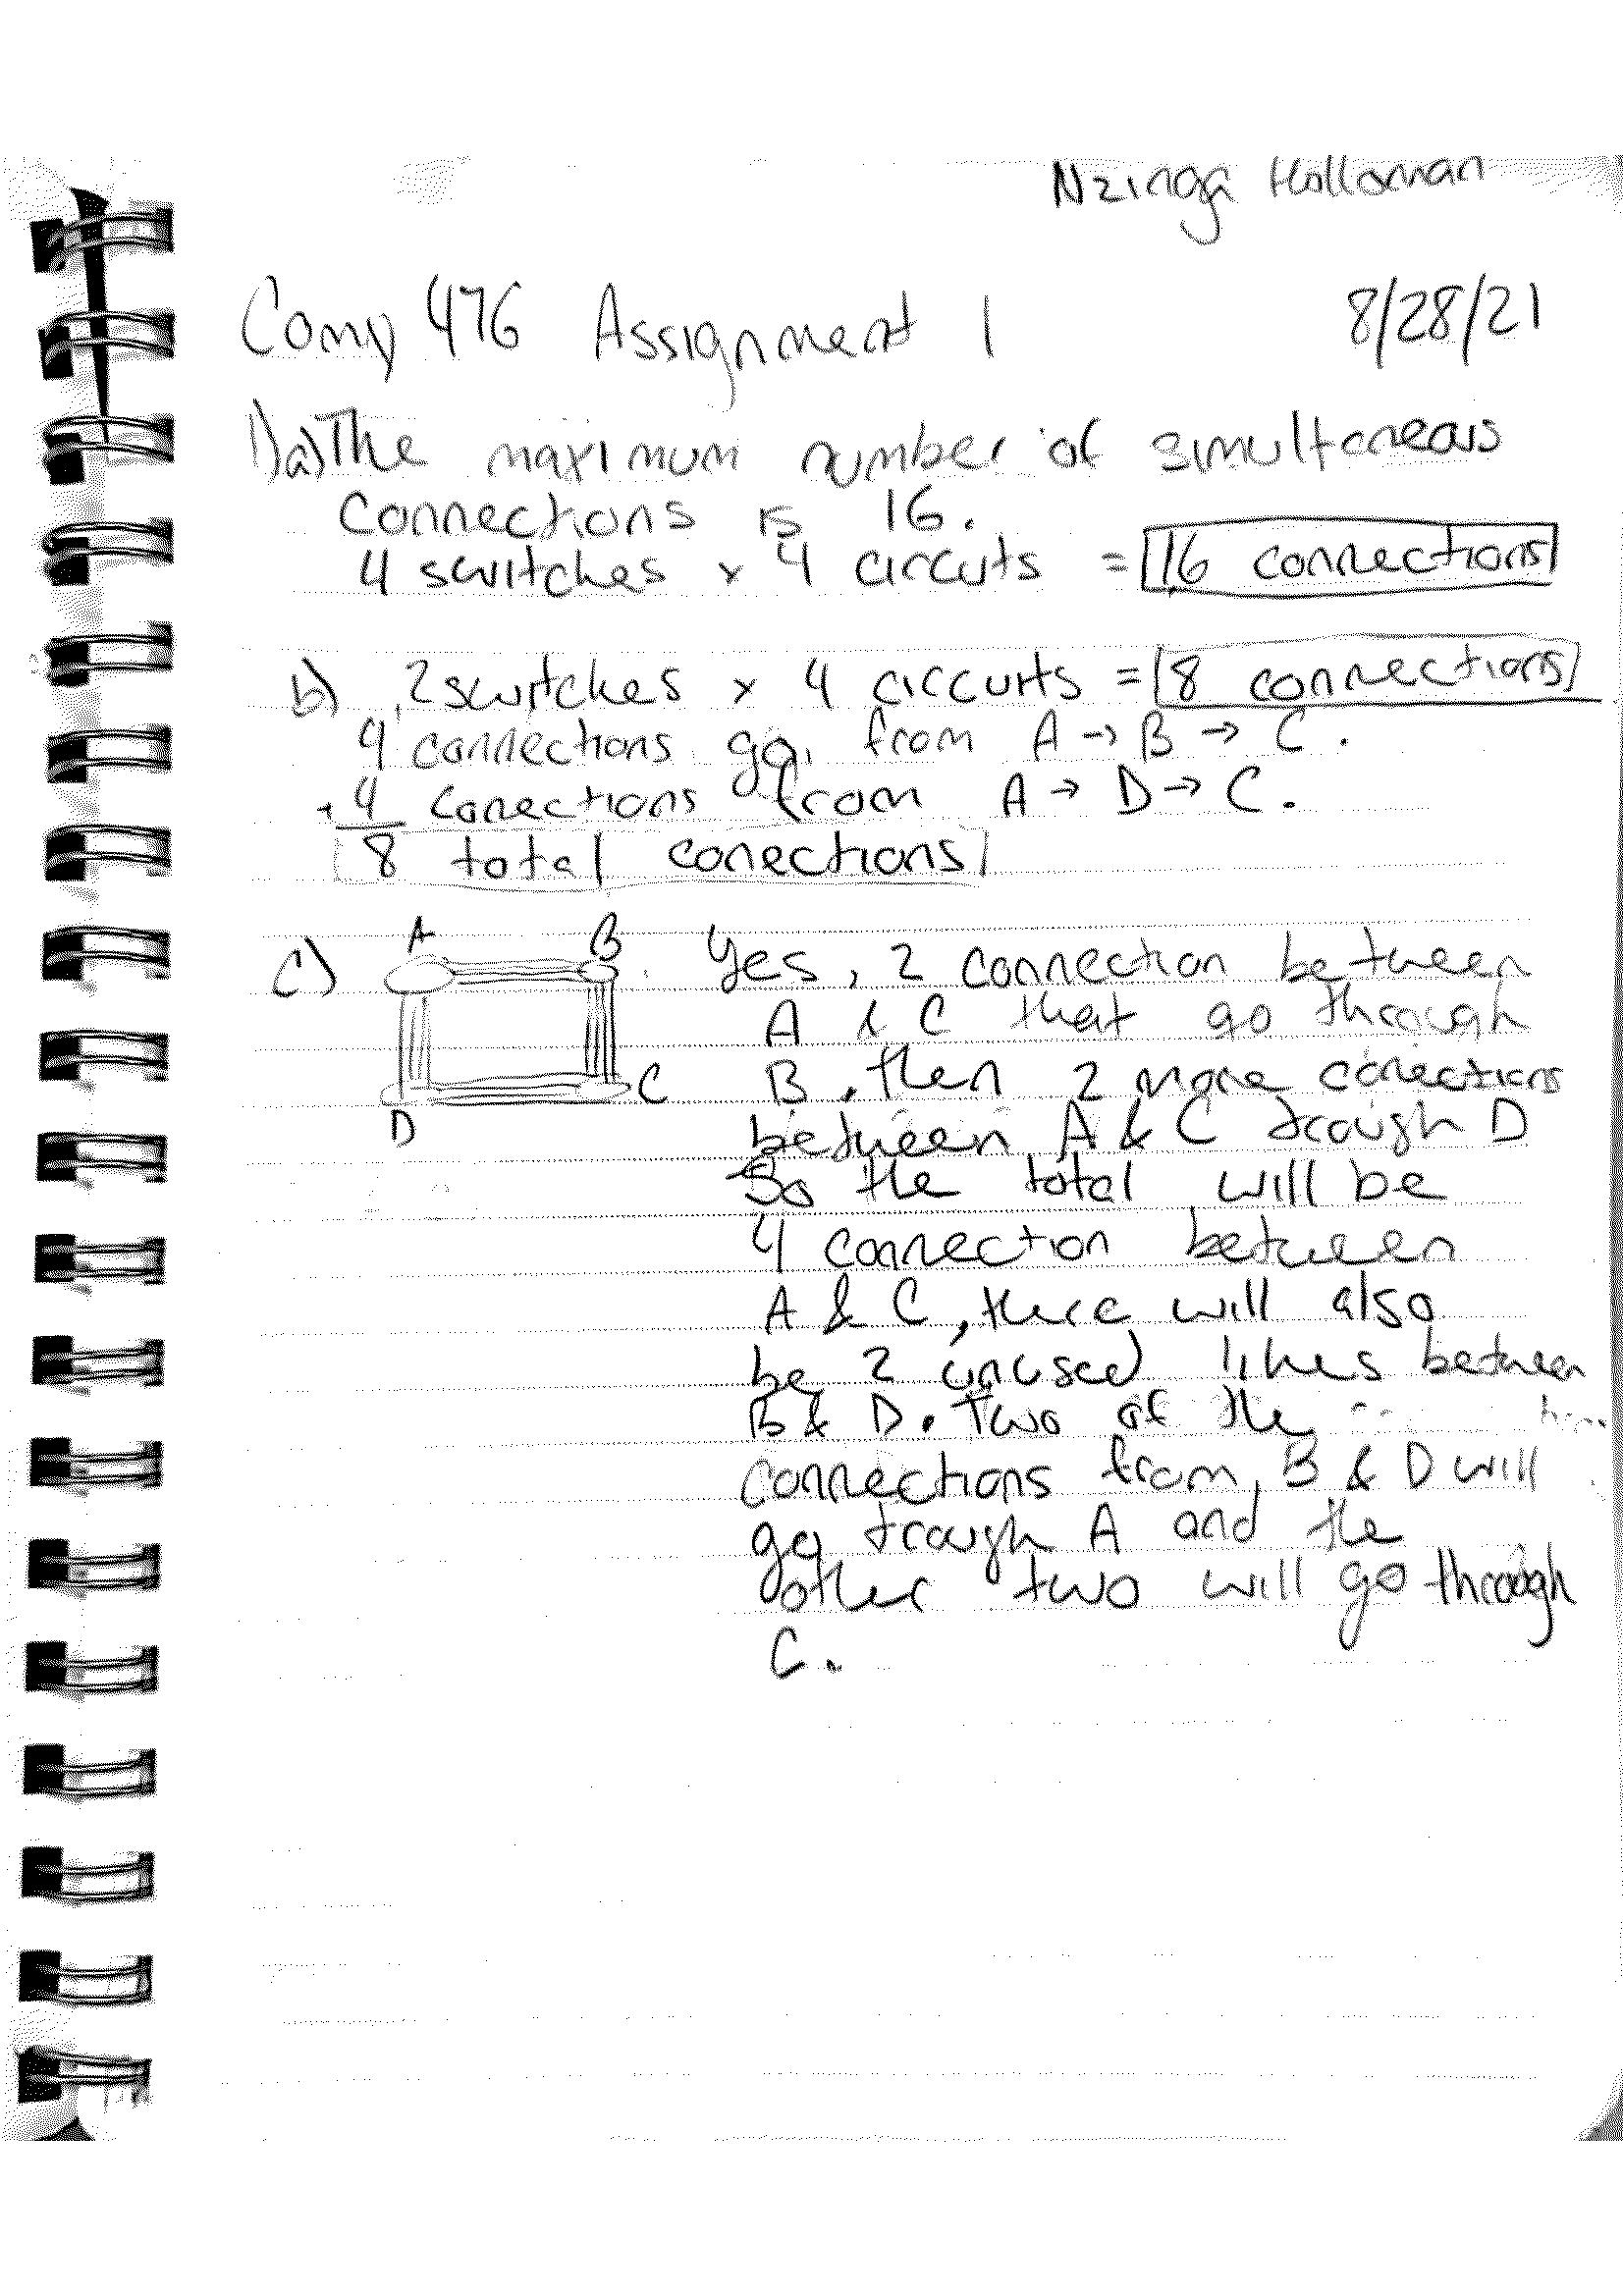 Nzinga Holloman
Comp 476 Assignment 1 8/28/21
1)a)The maximum number of simultaneous
Connections is 16.
4 switches x 4 circuts = 16 connections
b) 2 switches x 4 circuits = 8 connections
4 connections go from A → B → C.
+ 4 conections from A → D → C.
8 total conections
c) A B Yes, 2 connection between
A & C that go through
D C B, then 2 more conections
between A & C trough D
So the total will be
4 connection between
A & C, there will also
be 2 unused lines between
B & D. Two of the
connections from B & D will
go trough A and the
other two will go through
C.